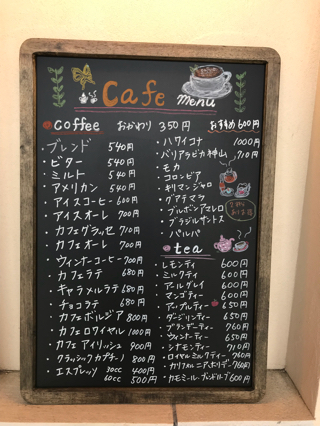 Cafe menu
coffee おかわり 350円 おすすめ 600円
・ブレンド 540円
・ビター 540円
・ミルト 540円
・アメリカン 540円
・アイスコーヒー 600円
・アイスオーレ 700円
・カフェグラッセ 710円
・カフェオーレ 700円
・ウィンナーコーヒー 700円
・カフェラテ 680円
・キャラメルラテ 680円
・チョコラテ 680円
・カフェボルジア 800円
・カフェロワイヤル 1000円
・カフェアイリッシュ 900円
・クラシックカプチーノ 800円
・エスプレッソ 30cc 400円
60cc 500円
・ハワイコナ 1000円
・バリアラビカ神山 710円
・モカ
・コロンビア
・キリマンジャロ
・グアテマラ
・ブルボンアマレロ
・ブラジルサントス
・パルパ
tea
・レモンティ 600円
・ミルクティー 600円
・アールグレイ 600円
・マンゴティー 600円
・アップルティー 600円
・ダージリンティー 650円
・ブランデーティー 760円
・ウィンナーティー 650円
・シナモンティー 710円
・ロイヤルミルクティー 760円
・カモミール・ 600円